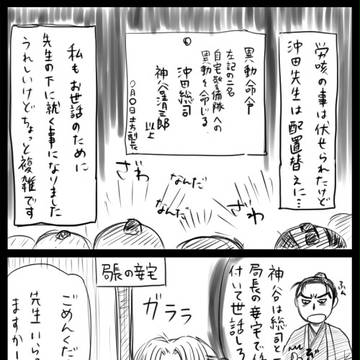 労咳の事は伏せられたけど
沖田先生は配置替えに…
異動命令
左記の二名
自宅警備隊への
異動を命じる
沖田総司
神谷清三郎
以上
〇月〇日 土方副長
私もお世話のために
先生の下に就く事になりました
うれしいけどちょっと複雑です
ざわ
なんだ
なんだ
ざわ
ふん
神谷は総司と
局長の妾宅で
付いて世話しろ
局長の妾宅
ガララ
ごめんくだ
先生いら
ますかー